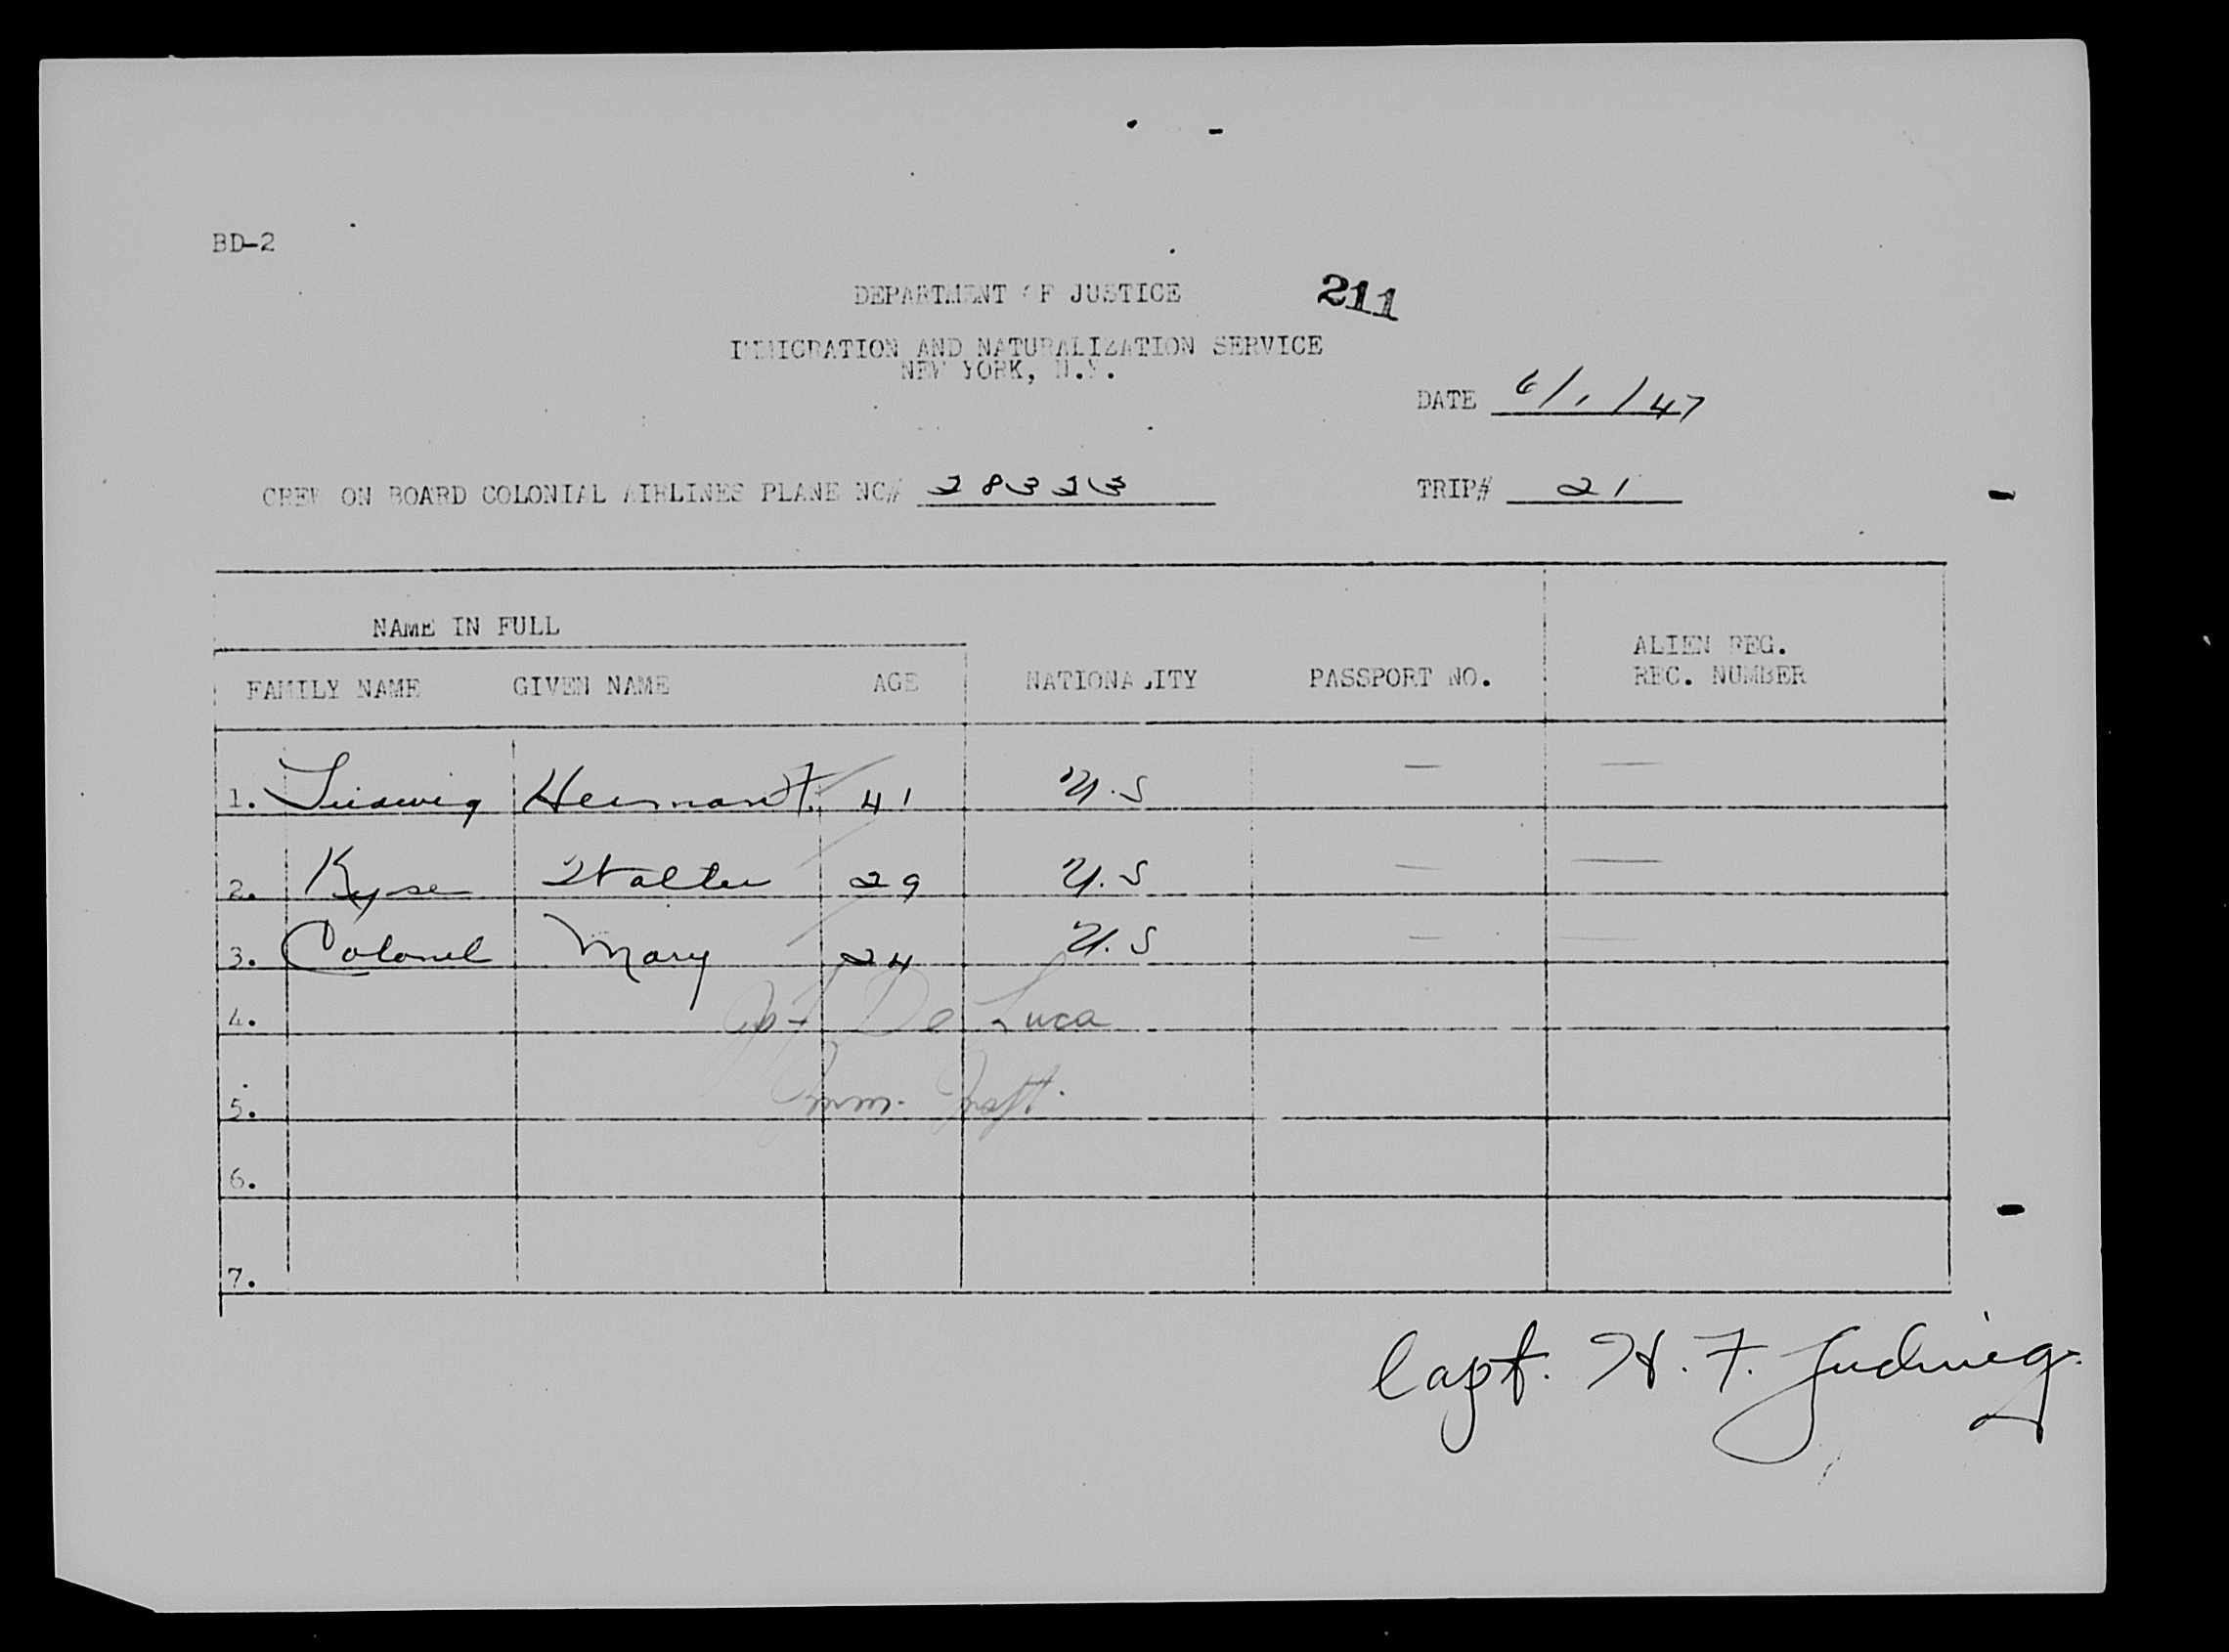 BD-2
DEPARTMENT OF JUSTICE 211
IMMIGRATION AND NATURALIZATION SERVICE
NEW YORK, N.Y.
DATE 6/1/47
CREW ON BOARD COLONIAL AIRLINES PLANE NC# 28323 TRIP# 21
NAME IN FULL
FAMILY NAME GIVEN NAME AGE NATIONALITY PASSPORT NO. ALIEN REG. REC. NUMBER
1. Ludwig Herman F. 41 U.S — —
2. Kyse Walter 29 U.S — —
3. Colonel Mary 24 U.S — —
4. De Luca
5. Imm. Inspt.
6.
7.
Capt. H. F. Ludwig.